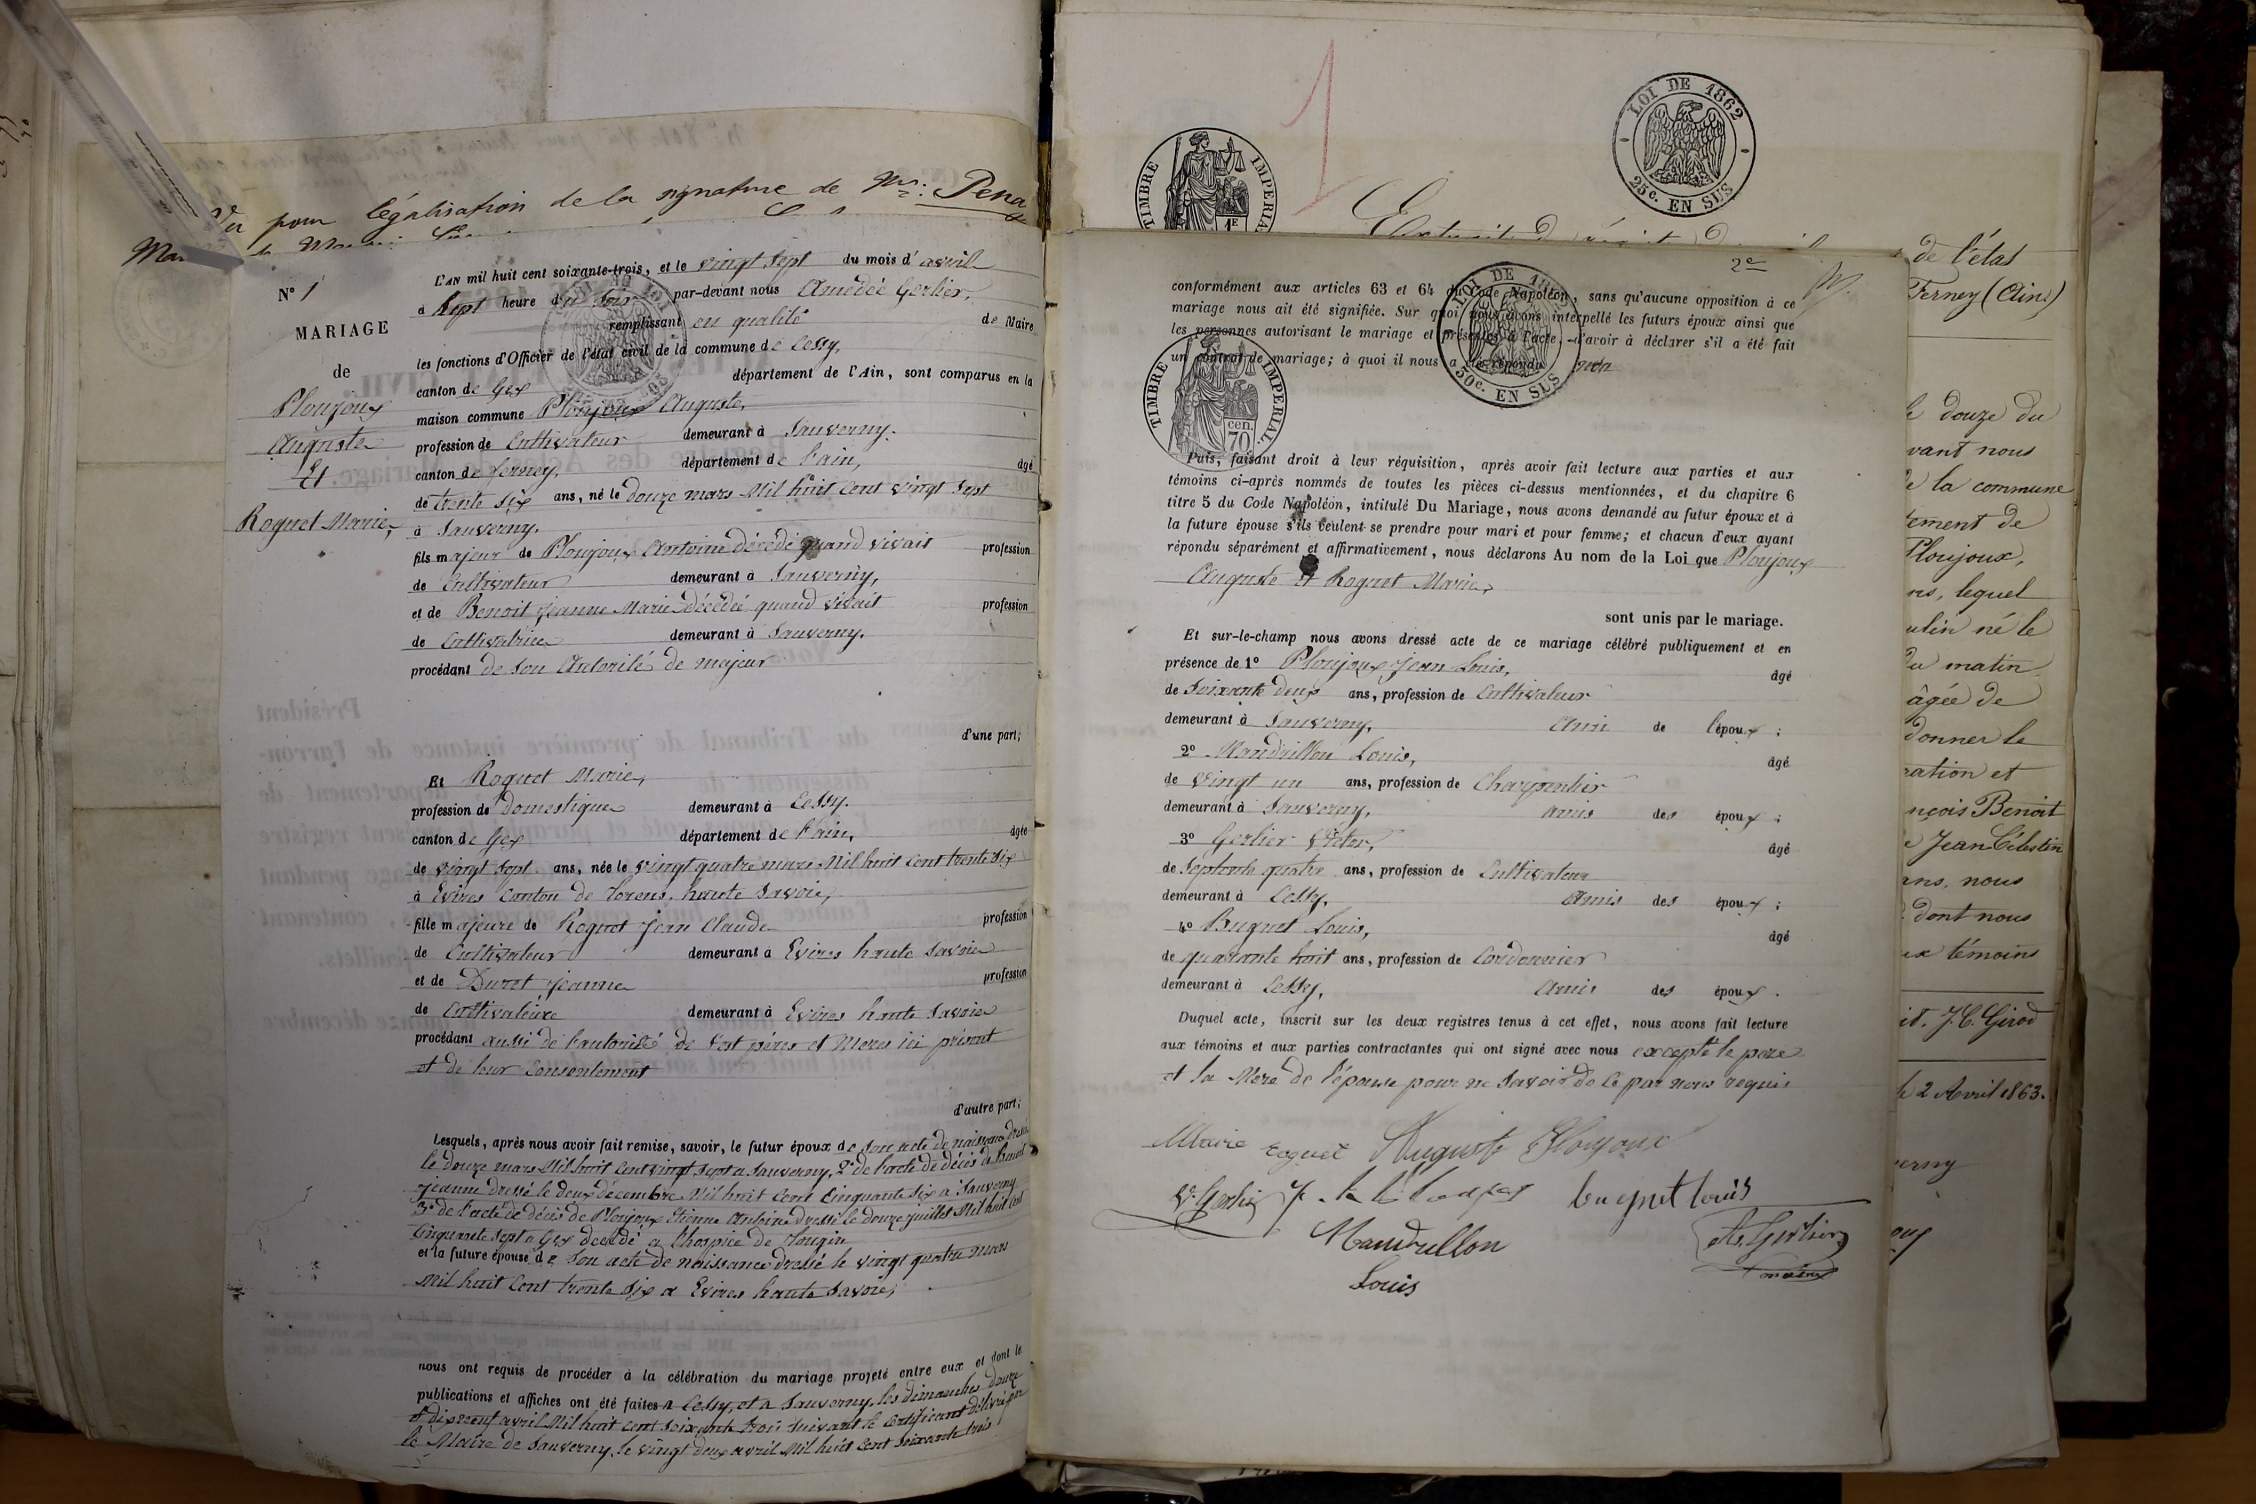 Vu pour légalisation de la signature de Mr: Pena
N° 1
MARIAGE
de
Ploujoux
Auguste
Et
Roguet Marie,
L'AN mil huit cent soixante-trois, et le vingt sept du mois d'avril
a sept heure du soir par-devant nous Amédée Gerlier,
remplissant en qualité de Maire
les fonctions d'Officier de l'état civil de la commune de Cessy,
canton de Gex département de l'Ain, sont comparus en la
maison commune Ploujoux Auguste,
profession de Cultivateur demeurant à Sauverny.
canton de ferney, département de l'ain, âgé
de trente six ans, né le douze mars Mil huit cent vingt sept
à Sauverny.
fils majeur de Ploujoux Antoine décédé quand vivait profession
de Cultivateur demeurant à Sauverny,
et de Benoit Jeanne Marie décédée quand vivait profession
de Cultivatrice demeurant à Sauverny.
procédant de son Autorité de majeur
d'une part;
Et Roguet Marie,
profession de domestique demeurant à Cessy.
canton de Gex département de l'ain, âgée
de vingt sept ans, née le vingt quatre mars Mil huit cent trente six
à Evires Canton de Thorens, haute Savoie,
fille majeure de Roguet Jean Claude profession
de Cultivateur demeurant à Evires haute Savoie
et de Duret Jeanne profession
de Cultivateure demeurant à Evires haute Savoie
procédant aussi de l'autorité de Sest pères et Meres ici présent
et de leur Consentement
d'autre part;
Lesquels, après nous avoir fait remise, savoir, le futur époux de son acte de naissance dressé
le douze mars Mil huit Cent vingt sept a Sauverny, 2° de l'acte de décès de Benoit
Jeanne dressé le deux décembre Mil huit Cent Cinquante Six a Sauverny
3° de l'acte de décès de Ploujoux Etienne Antoine dressé le douze juillet Mil huit cent
Cinquante Sept a Gex décédé a l'hospice de Tougin
et la future épouse de Son acte de naissance dressé le vingt quatre mars
Mil huit Cent trente Six a Evires haute Savoie;
nous ont requis de procéder à la célébration du mariage projeté entre eux et dont le
publications et affiches ont été faites a Cessy, et a Sauverny, les dimanches douze
et dix neuf avril Mil huit cent Soixante trois suivant le Certificant délivré par
le Maire de Sauverny, le vingt deux avril Mil huit Cent Soixante trois
1
LOI DE 1862
25c. EN SUS
TIMBRE IMPERIAL
1E
2e
conformément aux articles 63 et 64 du Code Napoléon, sans qu'aucune opposition à ce
mariage nous ait été signifiée. Sur quoi nous avons interpellé les futurs époux ainsi que
les personnes autorisant le mariage et présentes à l'acte, d'avoir à déclarer s'il a été fait
un contrat de mariage; à quoi il nous a été répondu non
LOI DE 1862
50c. EN SUS
TIMBRE IMPERIAL.
cen.
70
Puis, faisant droit à leur réquisition, après avoir fait lecture aux parties et aux
témoins ci-après nommés de toutes les pièces ci-dessus mentionnées, et du chapitre 6
titre 5 du Code Napoléon, intitulé Du Mariage, nous avons demandé au futur époux et à
la future épouse s'ils veulent se prendre pour mari et pour femme; et chacun d'eux ayant
répondu séparément et affirmativement, nous déclarons Au nom de la Loi que Ploujoux
Auguste et Roguet Marie,
sont unis par le mariage.
Et sur-le-champ nous avons dressé acte de ce mariage célébré publiquement et en
présence de 1° Ploujoux Jean Louis, âgé
de Soixante deux ans, profession de Cultivateur
demeurant à Sauverny, Ami de l'époux ;
2° Mandrillon Louis, âgé
de vingt un ans, profession de Charpentier
demeurant à Sauverny, amis des époux ;
3° Gerlier Victor, âgé
de Septante quatre ans, profession de Cultivateur
demeurant à Cessy, Amis des époux ;
4° Buquet Louis, âgé
de quarante huit ans, profession de Cordonnier
demeurant à Cessy, Amis des époux .
Duquel acte, inscrit sur les deux registres tenus à cet effet, nous avons fait lecture
aux témoins et aux parties contractantes qui ont signé avec nous excepté le pere
et la Mere de l'épouse pour ne Savoir de ce par nous requis
Marie roguet Auguste Ploujoux
Vr. Gerlier
buquet louis
Mandrillon
Louis
A. Gerlier
maire
de l'état
Ferney (Ain)
le douze du
vant nous
de la commune
tement de
Ploujoux,
ns, lequel
utin né le
du matin
âgée de
donner le
ration et
nçois Benoit
Jean Célestin
ans, nous
dont nous
ux témoins
it. J. C. Girod
le 2 Avril 1863.
verny
oux